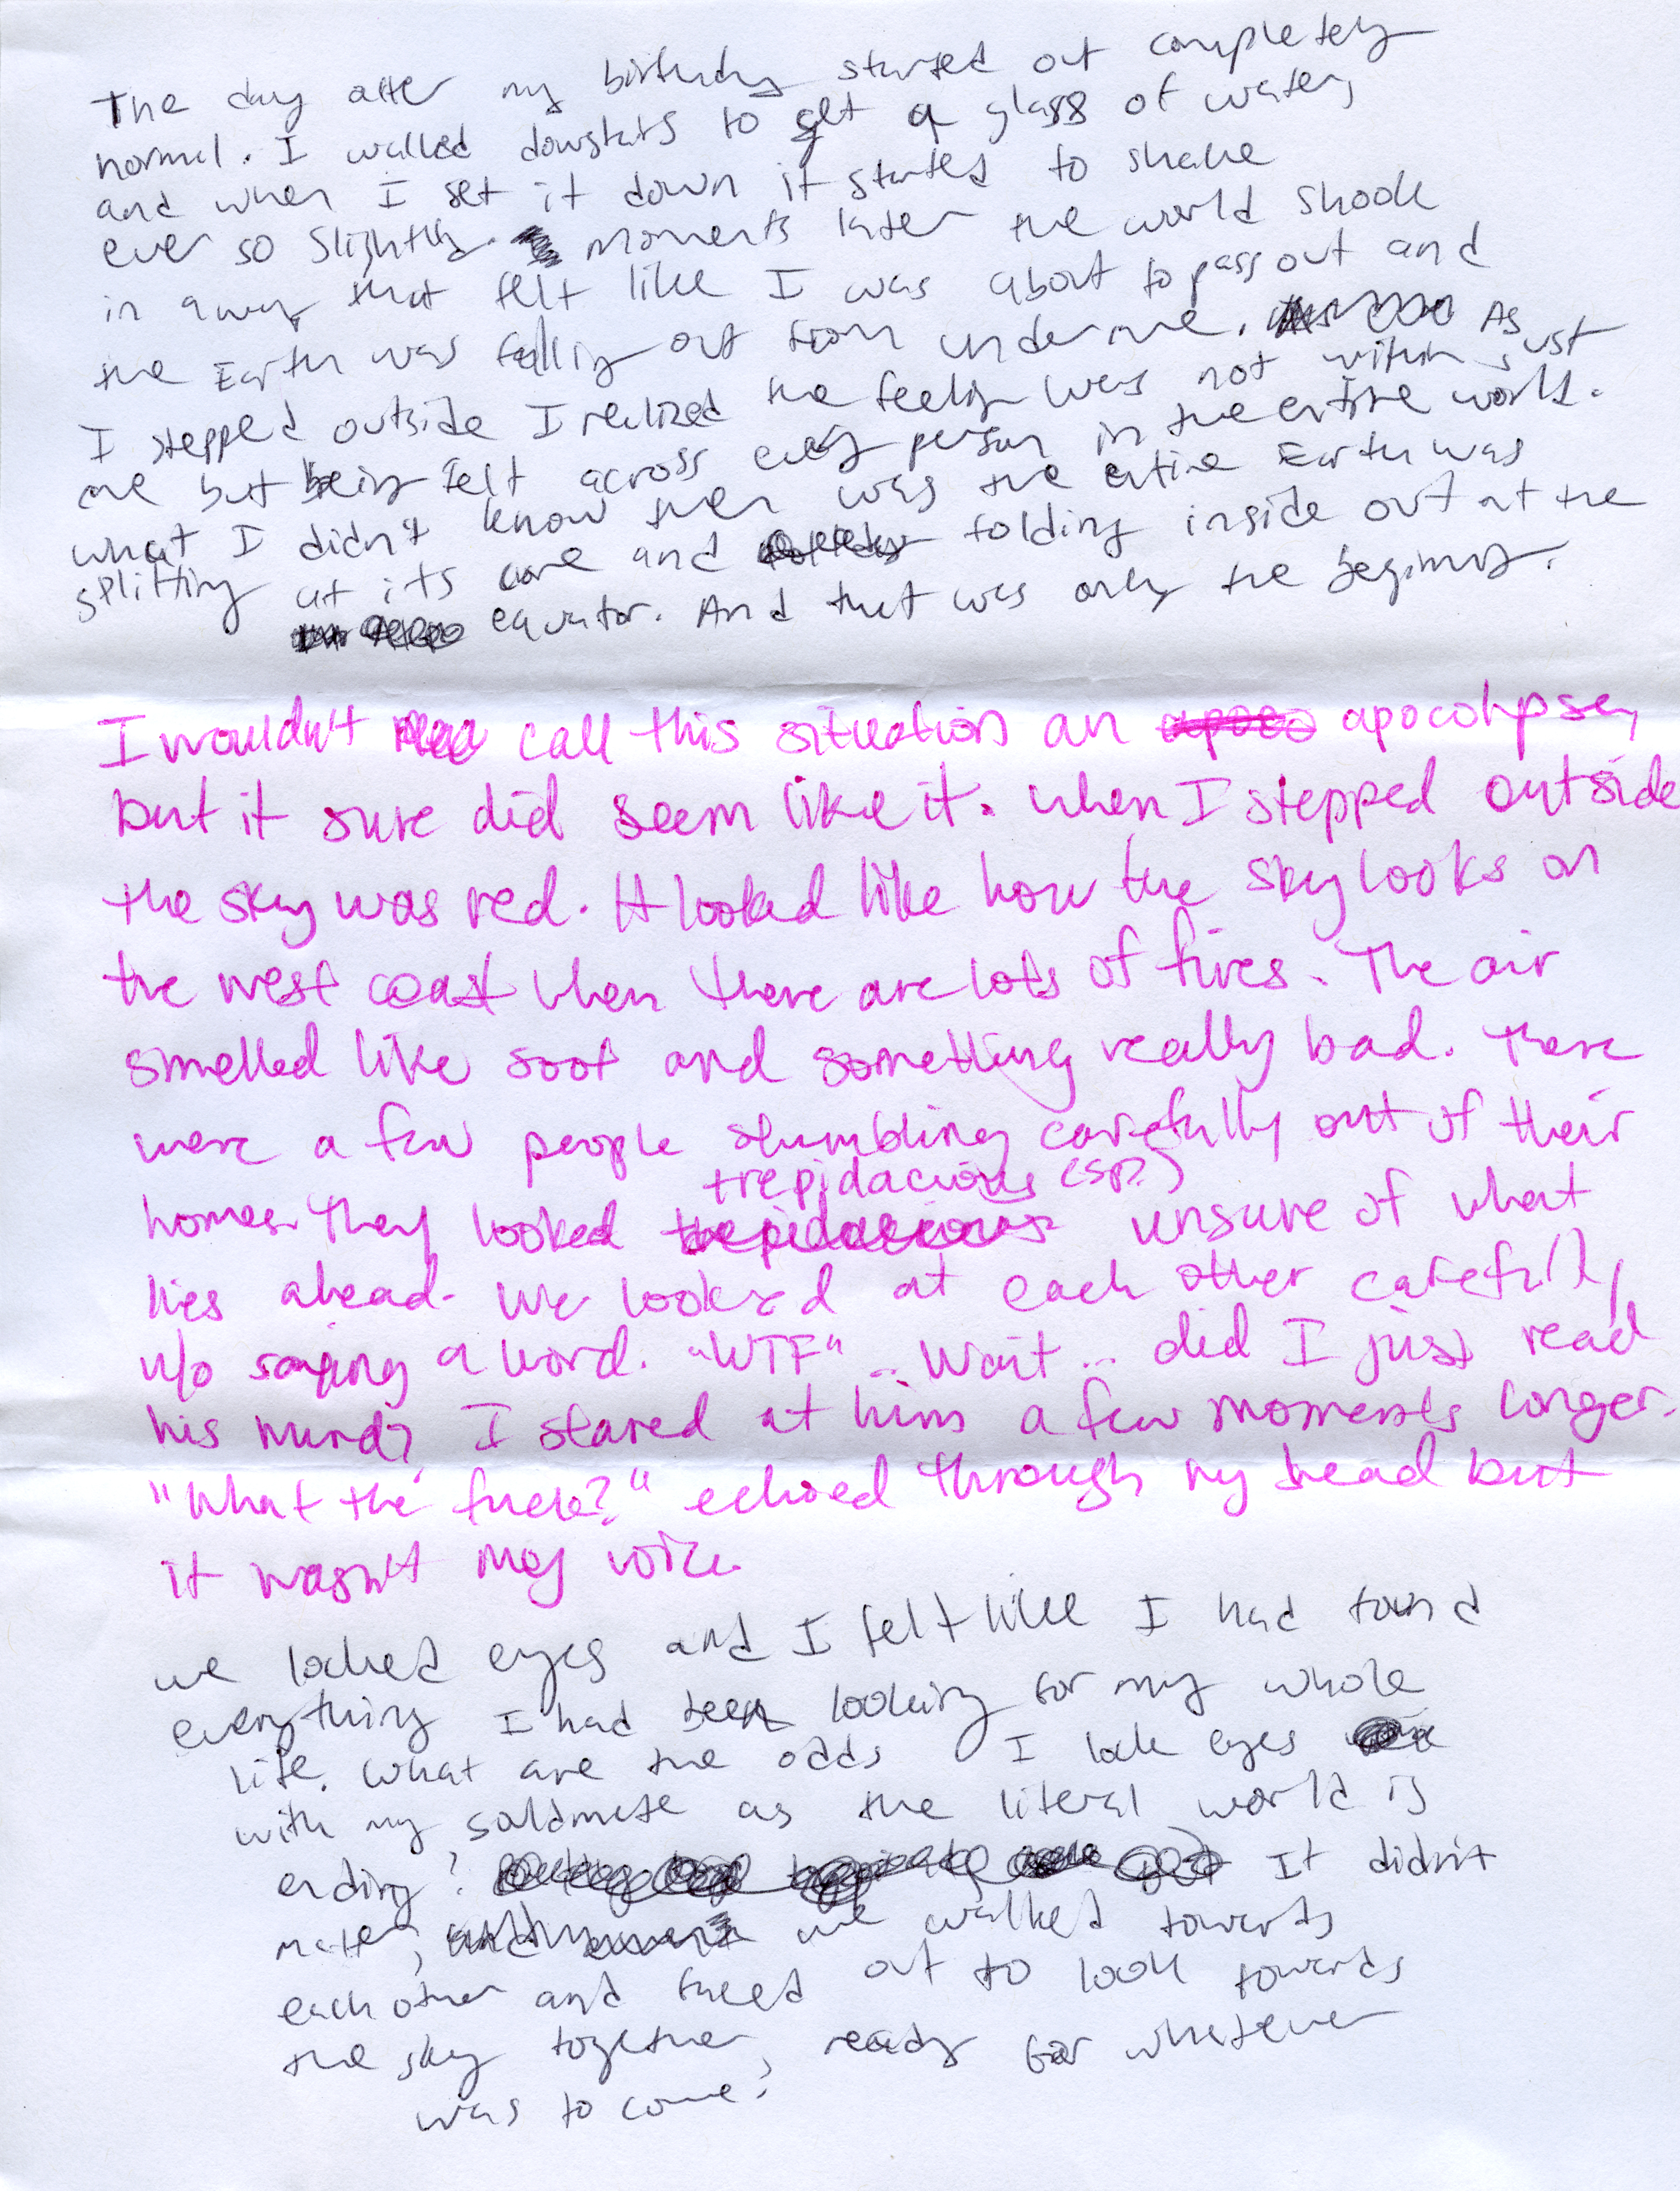 The day after my birthday started out completely
normal. I walked downstairs to get a glass of water,
and when I set it down it started to shake
ever so slightly. moments later the world shook
in a way that felt like I was about to pass out and
the Earth was falling out from under me. As
I stepped outside I realized the feeling was not within just
me but being felt across every person in the entire world.
what I didn't know then was the entire Earth was
splitting at its core and folding inside out at the
equator. And that was only the beginning.
I wouldn't call this situation an apocolypse,
but it sure did seem like it. When I stepped outside
the sky was red. It looked like how the sky looks on
the west coast when there are lots of fires. The air
smelled like soot and something really bad. There
were a few people stumbling carefully out of their
trepidacious (sp?)
homes. They looked unsure of what
lies ahead. We looked at each other carefully
w/o saying a word. "WTF" .. Wait ... did I just read
his mind? I stared at him a few moments longer.
"What the fuck?" echoed through my head but
it wasn't my voice.
we locked eyes and I felt like I had found
everything I had been looking for my whole
life. What are the odds I lock eyes
with my soulmate as the literal world is
ending? It didn't
matter, we walked towards
each other and faced out to look towards
the sky together, ready for whatever
was to come.